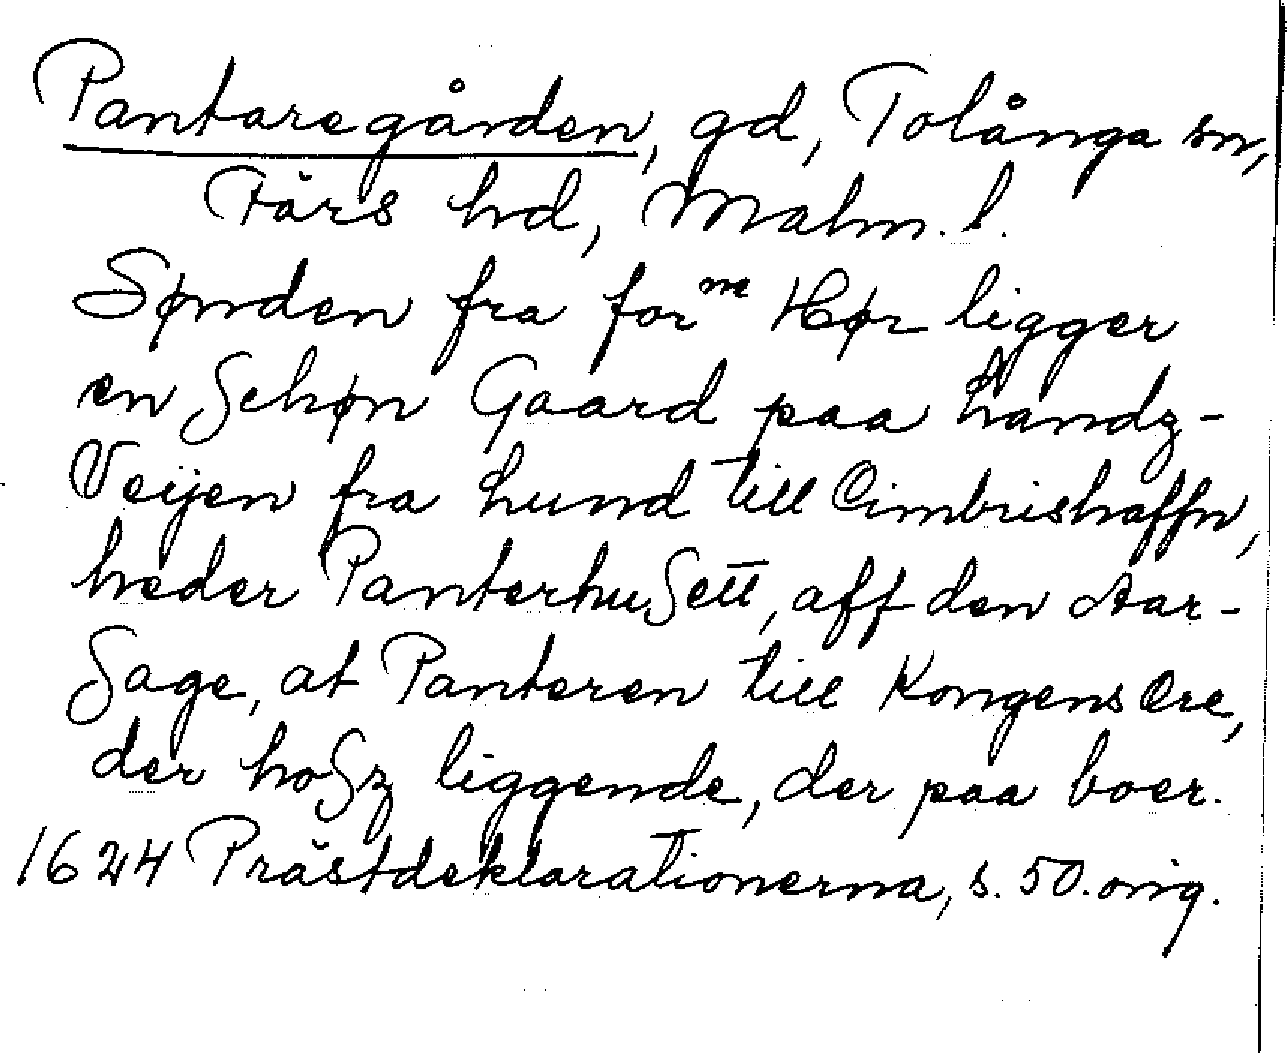 Pantaregården, gd, Tolånga sn,
Färs hd, Malm. l.
Sønden fra for^me Hør ligger
en Schøn Gaard paa Landz-
Veijen fra Lund till Cimbrishaffn,
heder PanterhuSett, aff den Aar-
Sage, at Panteren till Kongens Ere,
der hoSz liggende, der paa boer.
1624 Prästdeklarationerna, s. 50. orig.